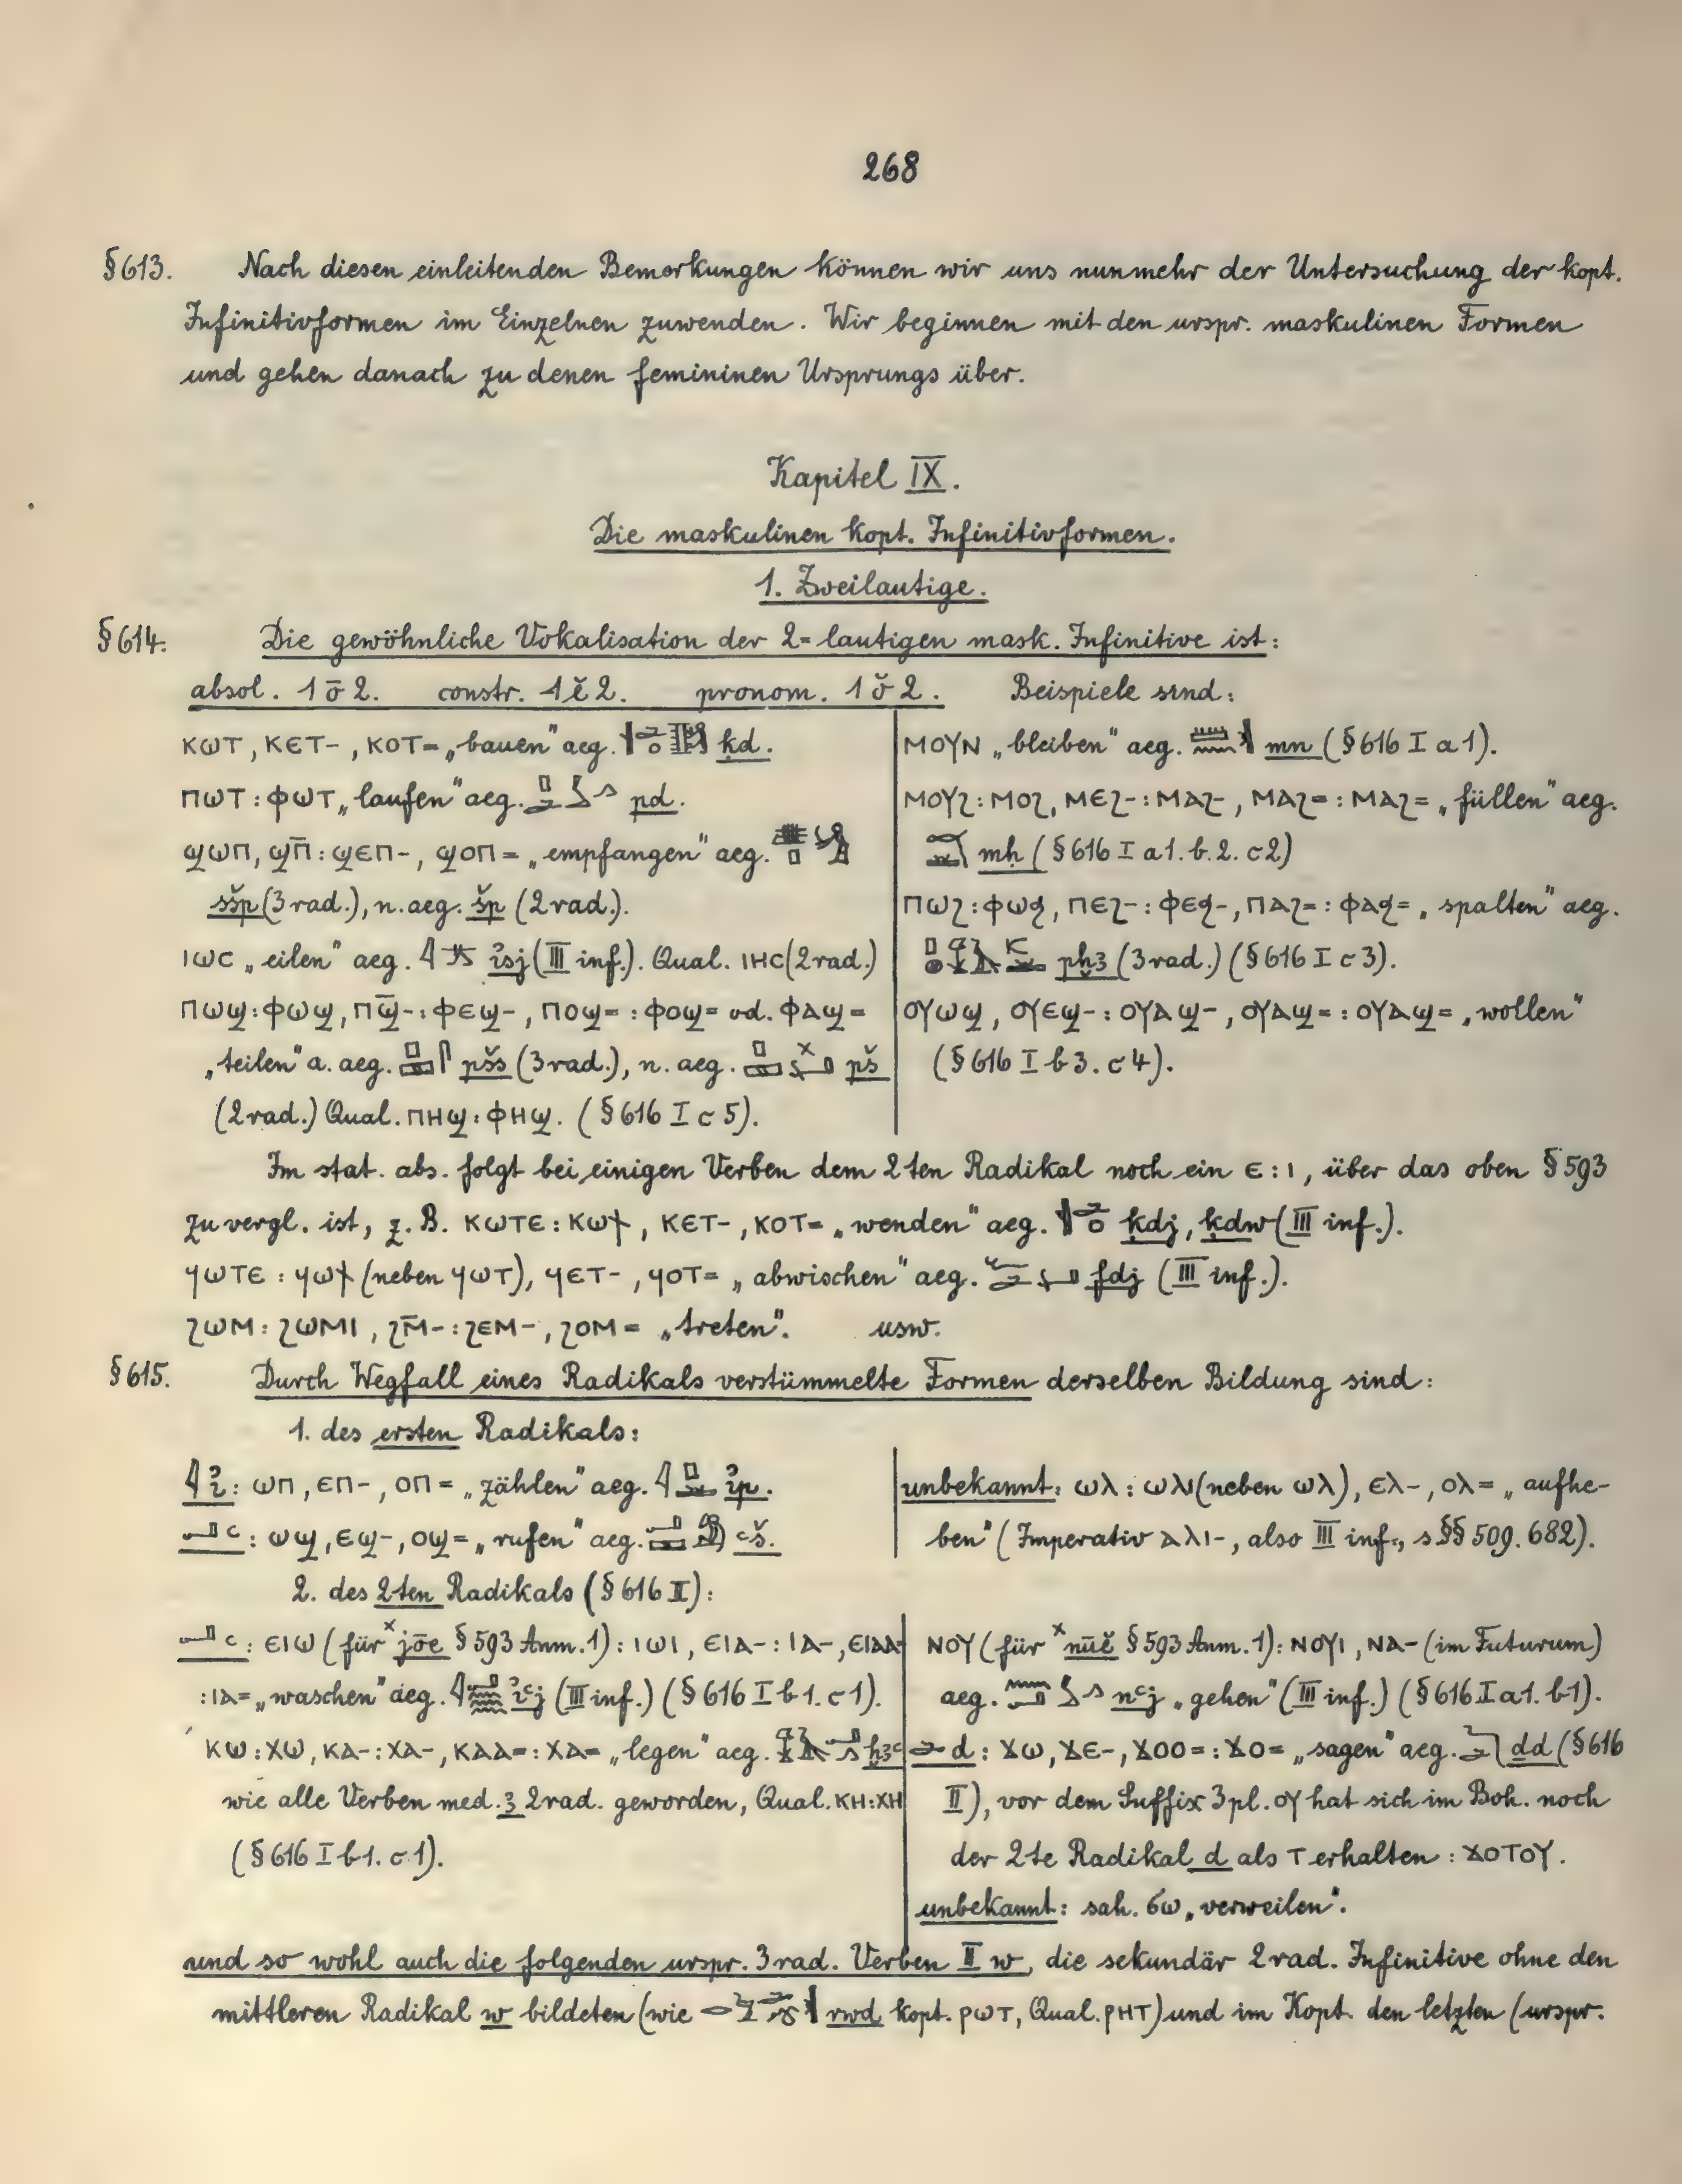 268
§613. Nach diesen einleitenden Bemerkungen können wir uns nunmehr der Untersuchung der kopt.
Infinitivformen im Einzelnen zuwenden. Wir beginnen mit den urspr. maskulinen Formen
und gehen danach zu denen femininen Ursprungs über.
Kapitel IX.
Die maskulinen kopt. Infinitivformen.
1. Zweilautige.
§614. Die gewöhnliche Vokalisation der 2-lautigen mask. Infinitive ist:
absol. 1 ō 2. constr. 1 ĕ 2. pronom. 1 ŏ 2. Beispiele sind:
ⲕⲱⲧ, ⲕⲉⲧ-, ⲕⲟⲧ= „bauen" aeg. ḳd.
ⲡⲱⲧ : ⲫⲱⲧ „laufen" aeg. pd.
ϣⲱⲡ, ϣⲡ̄ : ϣⲉⲡ-, ϣⲟⲡ= „empfangen" aeg.
šsp (3rad.), n. aeg. šp (2rad.).
ⲓⲱⲥ „eilen" aeg. ꞽsj (III inf.). Qual. ⲓⲏⲥ (2rad.)
ⲡⲱϣ : ⲫⲱϣ, ⲡϣ̄- : ⲫⲉϣ-, ⲡⲟϣ= : ⲫⲟϣ= od. ⲫⲁϣ=
„teilen" a. aeg. pšs (3rad.), n. aeg. pš
(2rad.) Qual. ⲡⲏϣ : ⲫⲏϣ. (§616 I c 5).
ⲙⲟⲩⲛ „bleiben" aeg. mn (§616 I a 1).
ⲙⲟⲩϩ : ⲙⲟϩ, ⲙⲉϩ- : ⲙⲁϩ-, ⲙⲁϩ= : ⲙⲁϩ= „füllen" aeg.
mḥ (§616 I a 1. b. 2. c 2)
ⲡⲱϩ : ⲫⲱϧ, ⲡⲉϩ- : ⲫⲉϧ-, ⲡⲁϩ= : ⲫⲁϧ= „spalten" aeg.
pḫꜣ (3rad.) (§616 I c 3).
ⲟⲩⲱϣ, ⲟⲩⲉϣ- : ⲟⲩⲁϣ-, ⲟⲩⲁϣ= : ⲟⲩⲁϣ= „wollen"
(§616 I b 3. c 4).
Im stat. abs. folgt bei einigen Verben dem 2ten Radikal noch ein ⲉ : ⲓ, über das oben §593
zu vergl. ist, z. B. ⲕⲱⲧⲉ : ⲕⲱϯ, ⲕⲉⲧ-, ⲕⲟⲧ= „wenden" aeg. ḳdj, ḳdw (III inf.).
ϥⲱⲧⲉ : ϥⲱϯ (neben ϥⲱⲧ), ϥⲉⲧ-, ϥⲟⲧ= „abwischen" aeg. fdj (III inf.).
ϩⲱⲙ : ϩⲱⲙⲓ, ϩⲙ̄- : ϩⲉⲙ-, ϩⲟⲙ= „treten". usw.
§615. Durch Wegfall eines Radikals verstümmelte Formen derselben Bildung sind:
1. des ersten Radikals:
ꞽ : ⲱⲡ, ⲉⲡ-, ⲟⲡ= „zählen" aeg. ꞽp.
ꜥ : ⲱϣ, ⲉϣ-, ⲟϣ= „rufen" aeg. ꜥš.
unbekannt: ⲱⲗ : ⲱⲗⲓ (neben ⲱⲗ), ⲉⲗ-, ⲟⲗ= „aufhe-
ben" (Imperativ ⲁⲗⲓ-, also III inf., s. §§ 509. 682).
2. des 2ten Radikals (§616 II):
ꜥ : ⲉⲓⲱ (für ˣjōe §593 Anm. 1) : ⲓⲱⲓ, ⲉⲓⲁ- : ⲓⲁ-, ⲉⲓⲁⲁ=
: ⲓⲁ= „waschen" aeg. ꞽꜥj (III inf.) (§616 I b 1. c 1).
ⲕⲱ : ⲭⲱ, ⲕⲁ- : ⲭⲁ-, ⲕⲁⲁ= : ⲭⲁ= „legen" aeg. ḫꜣꜥ
wie alle Verben med. ꜣ 2rad. geworden, Qual. ⲕⲏ : ⲭⲏ
(§616 I b 1. c 1).
ⲛⲟⲩ (für ˣnūĕ §593 Anm. 1) : ⲛⲟⲩⲓ, ⲛⲁ- (im Futurum)
aeg. nꜥj „gehen" (III inf.) (§616 I a 1. b 1).
d : ϫⲱ, ϫⲉ-, ϫⲟⲟ= : ϫⲟ= „sagen" aeg. ḏd (§616
II), vor dem Suffix 3 pl. ⲟⲩ hat sich im Boh. noch
der 2te Radikal d als ⲧ erhalten : ϫⲟⲧⲟⲩ.
unbekannt: sah. ϭⲱ „verweilen".
und so wohl auch die folgenden urspr. 3rad. Verben II w, die sekundär 2rad. Infinitive ohne den
mittleren Radikal w bildeten (wie rwd kopt. ⲣⲱⲧ, Qual. ⲣⲏⲧ) und im Kopt. den letzten (urspr.